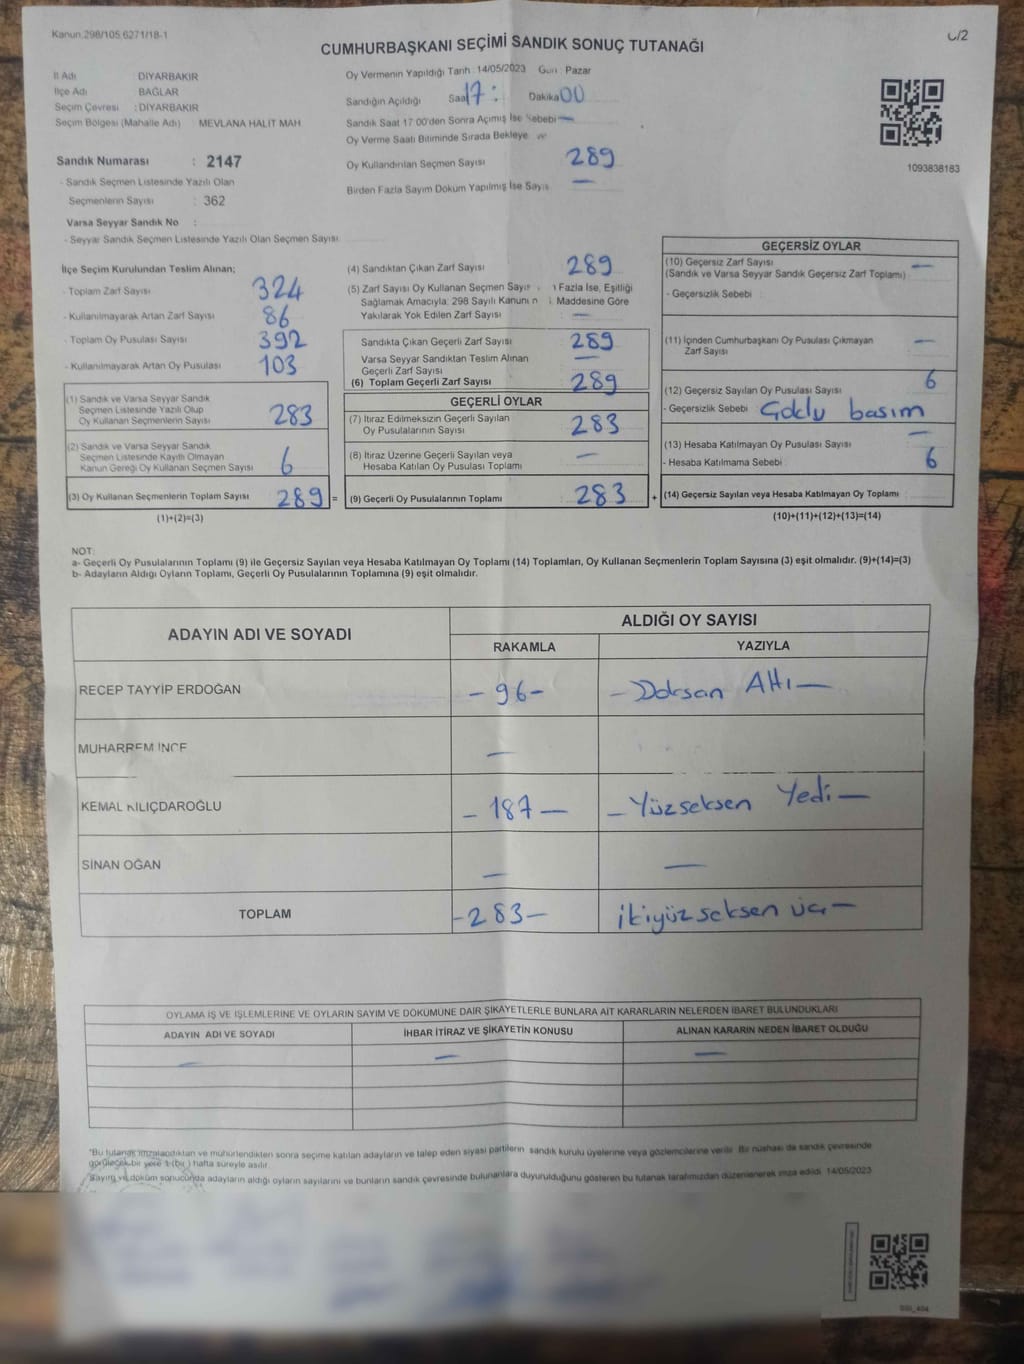 Kanun.298/105,6271/18-1
CUMHURBAŞKANI SEÇİMİ SANDIK SONUÇ TUTANAĞI
/2
İl Adı : DİYARBAKIR
İlçe Adı : BAĞLAR
Seçim Çevresi : DİYARBAKIR
Seçim Bölgesi (Mahalle Adı) MEVLANA HALİT MAH
Sandık Numarası : 2147
- Sandık Seçmen Listesinde Yazılı Olan
Seçmenlerin Sayısı : 362
Varsa Seyyar Sandık No :
- Seyyar Sandık Seçmen Listesinde Yazılı Olan Seçmen Sayısı
Oy Vermenin Yapıldığı Tarih : 14/05/2023 Gün : Pazar
Sandığın Açıldığı Saat 17 : Dakika 00
Sandık Saat 17:00'den Sonra Açılmış İse Sebebi —
Oy Verme Saati Bitiminde Sırada Bekleye
Oy Kullandırılan Seçmen Sayısı 289
Birden Fazla Sayım Döküm Yapılmış İse Sayıs —
1093838183
İlçe Seçim Kurulundan Teslim Alınan;
- Toplam Zarf Sayısı 324
- Kullanılmayarak Artan Zarf Sayısı 86
- Toplam Oy Pusulası Sayısı 392
- Kullanılmayarak Artan Oy Pusulası 103
(1) Sandık ve Varsa Seyyar Sandık
Seçmen Listesinde Yazılı Olup
Oy Kullanan Seçmenlerin Sayısı 283
(2) Sandık ve Varsa Seyyar Sandık
Seçmen Listesinde Kayıtlı Olmayan
Kanun Gereği Oy Kullanan Seçmen Sayısı 6
(3) Oy Kullanan Seçmenlerin Toplam Sayısı 289 =
(1)+(2)=(3)
(4) Sandıktan Çıkan Zarf Sayısı 289
(5) Zarf Sayısı Oy Kullanan Seçmen Sayıs Fazla İse, Eşitliği
Sağlamak Amacıyla: 298 Sayılı Kanunun Maddesine Göre
Yakılarak Yok Edilen Zarf Sayısı : —
Sandıkta Çıkan Geçerli Zarf Sayısı 289
Varsa Seyyar Sandıktan Teslim Alınan —
Geçerli Zarf Sayısı
(6) Toplam Geçerli Zarf Sayısı 289
GEÇERLİ OYLAR
(7) İtiraz Edilmeksizin Geçerli Sayılan
Oy Pusulalarının Sayısı 283
(8) İtiraz Üzerine Geçerli Sayılan veya —
Hesaba Katılan Oy Pusulası Toplamı
(9) Geçerli Oy Pusulalarının Toplamı 283 +
GEÇERSİZ OYLAR
(10) Geçersiz Zarf Sayısı —
(Sandık ve Varsa Seyyar Sandık Geçersiz Zarf Toplamı)
- Geçersizlik Sebebi :
(11) İçinden Cumhurbaşkanı Oy Pusulası Çıkmayan —
Zarf Sayısı
(12) Geçersiz Sayılan Oy Pusulası Sayısı 6
- Geçersizlik Sebebi Çoklu basım
(13) Hesaba Katılmayan Oy Pusulası Sayısı —
- Hesaba Katılmama Sebebi 6
(14) Geçersiz Sayılan veya Hesaba Katılmayan Oy Toplamı
(10)+(11)+(12)+(13)=(14)
NOT:
a- Geçerli Oy Pusulalarının Toplamı (9) ile Geçersiz Sayılan veya Hesaba Katılmayan Oy Toplamı (14) Toplamları, Oy Kullanan Seçmenlerin Toplam Sayısına (3) eşit olmalıdır. (9)+(14)=(3)
b- Adayların Aldığı Oyların Toplamı, Geçerli Oy Pusulalarının Toplamına (9) eşit olmalıdır.
ADAYIN ADI VE SOYADI
ALDIĞI OY SAYISI
RAKAMLA YAZIYLA
RECEP TAYYİP ERDOĞAN -96- -Doksan Altı-
MUHARREM İNCE —
KEMAL KILIÇDAROĞLU -187- -Yüzseksen Yedi-
SİNAN OĞAN — —
TOPLAM -283- ikiyüzseksen üç-
OYLAMA İŞ VE İŞLEMLERİNE VE OYLARIN SAYIM VE DÖKÜMÜNE DAİR ŞİKAYETLERLE BUNLARA AİT KARARLARIN NELERDEN İBARET BULUNDUKLARI
ADAYIN ADI VE SOYADI İHBAR İTİRAZ VE ŞİKAYETİN KONUSU ALINAN KARARIN NEDEN İBARET OLDUĞU
— — —
*Bu tutanak imzalandıktan ve mühürlendikten sonra seçime katılan adayların ve talep eden siyasi partilerin sandık kurulu üyelerine veya gözlemcilerine verilir. Bir nüshası da sandık çevresinde
görülecek bir yere 1 (bir) hafta süreyle asılır.
Sayım ve döküm sonucunda adayların aldığı oyların sayılarını ve bunların sandık çevresinde bulunanlara duyurulduğunu gösteren bu tutanak tarafımızdan düzenlenerek imza edildi. 14/05/2023